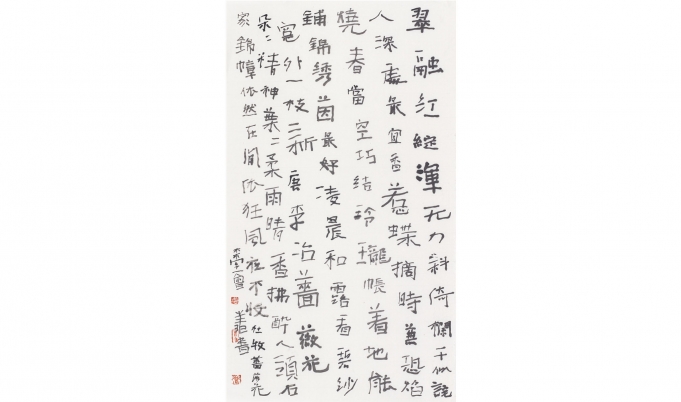 翠融红綻渾无力斜倚欄干似說
人深處最宜香惹蝶摘時兼恐焰
燒春當空巧結玲瓏帳着地能
鋪錦绣茵最好凌晨和露看碧纱
窗外一枝新 唐李冶薔薇花
朵々精神葉々柔雨晴香拂醉人頭石
家錦幛依然在閑倚狂風夜不收 杜牧薔薇花